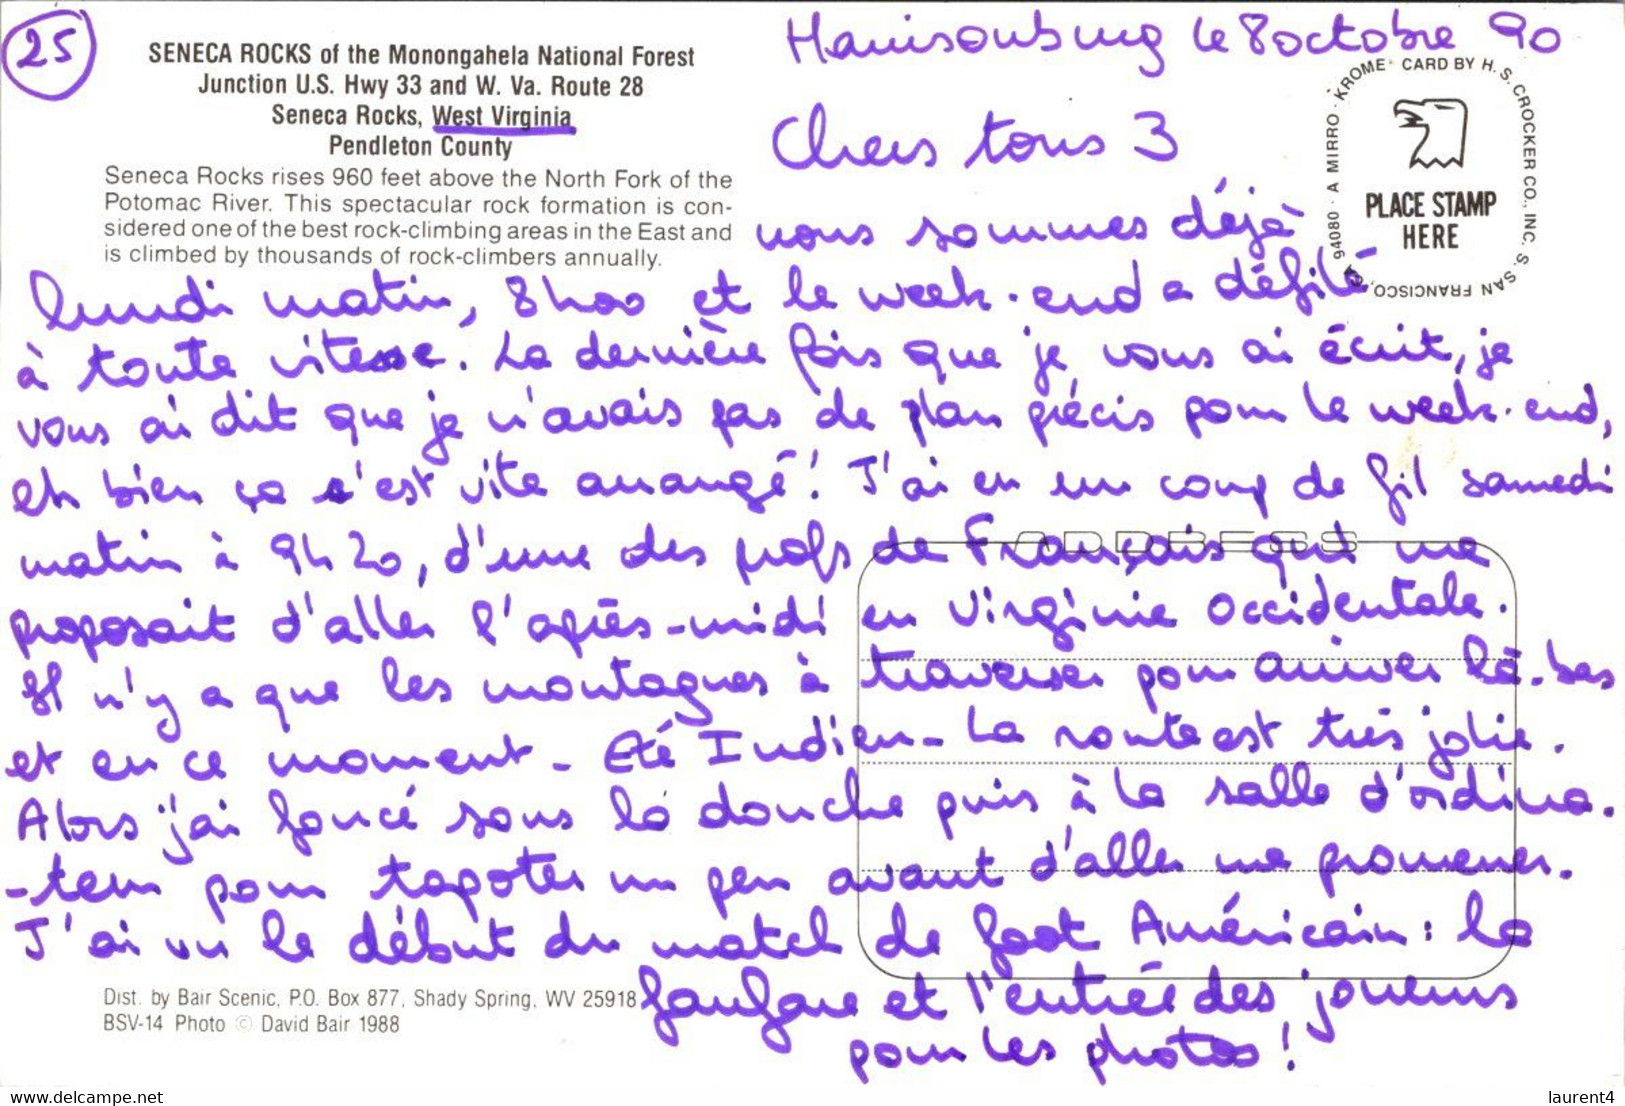 25
SENECA ROCKS of the Monongahela National Forest
Junction U.S. Hwy 33 and W. Va. Route 28
Seneca Rocks, West Virginia
Pendleton County
Seneca Rocks rises 960 feet above the North Fork of the
Potomac River. This spectacular rock formation is con-
sidered one of the best rock-climbing areas in the East and
is climbed by thousands of rock-climbers annually.
KROME CARD BY H. S. CROCKER CO., INC. S. SAN FRANCISCO, CA 94080 · A MIRRO ·
PLACE STAMP
HERE
ADDRESS
Harrisonburg le 8 octobre 90
Chers tous 3
nous sommes déjà
lundi matin, 8h00 et le week-end a défilé
à toute vitesse. La dernière fois que je vous ai écrit, je
vous ai dit que je n'avais pas de plan précis pour le week-end,
eh bien ça s'est vite arrangé! J'ai eu un coup de fil samedi
matin à 9h20, d'une des profs de Français qui me
proposait d'aller l'après-midi en Virginie Occidentale.
Il n'y a que les montagnes à traverser pour arriver là-bas
et en ce moment - Eté Indien - La route est très jolie.
Alors j'ai foncé sous la douche puis à la salle d'ordina-
-teur pour tapoter un peu avant d'aller me promener.
J'ai vu le début du match de foot Américain : la
fanfare et l'entrée des joueurs
pour les photos !
Dist. by Bair Scenic, P.O. Box 877, Shady Spring, WV 25918
BSV-14 Photo © David Bair 1988
www.delcampe.net
laurent4